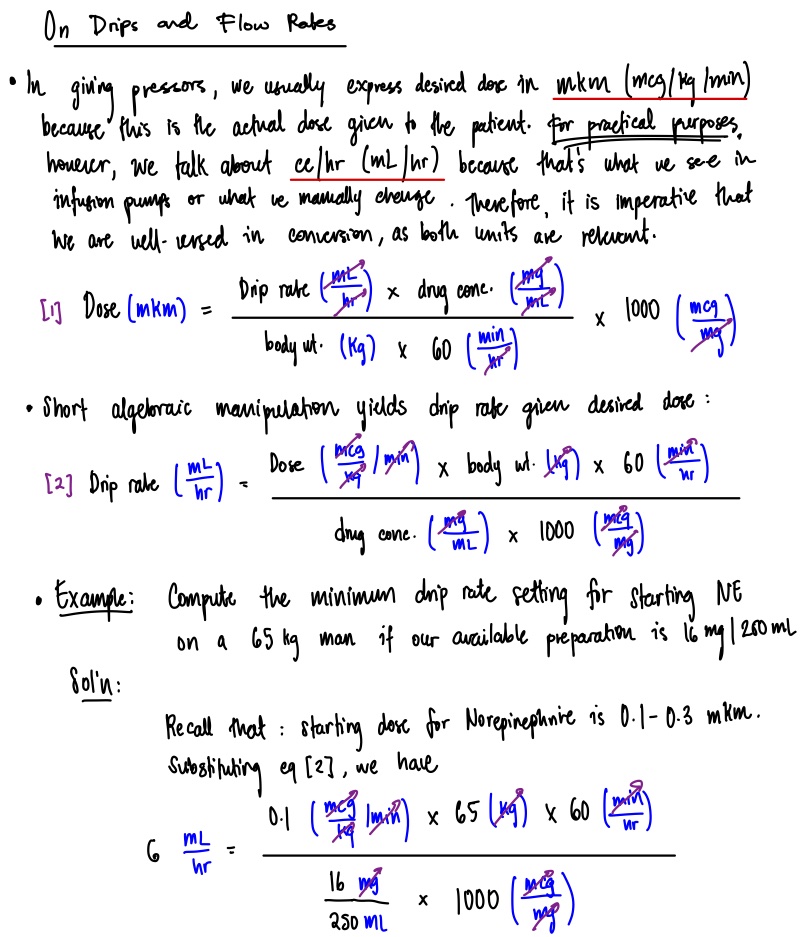 On Drips and Flow Rates
• In giving pressors, we usually express desired dose in mkm (mcg/kg/min)
because this is the actual dose given to the patient. For practical purposes,
however, we talk about cc/hr (mL/hr) because that's what we see in
infusion pumps or what we manually change. Therefore, it is imperative that
we are well-versed in conversion, as both units are relevant.
[1] Dose (mkm) = Drip rate (mL/hr) x drug conc. (mg/mL) / body wt. (kg) x 60 (min/hr) x 1000 (mcg/mg)
• Short algebraic manipulation yields drip rate given desired dose:
[2] Drip rate (mL/hr) = Dose (mcg/kg/min) x body wt. (kg) x 60 (min/hr) / drug conc. (mg/mL) x 1000 (mcg/mg)
• Example: Compute the minimum drip rate setting for starting NE
on a 65 kg man if our available preparation is 16 mg/250 mL
Sol'n:
Recall that: starting dose for Norepinephnire is 0.1-0.3 mkm.
Substituting eq [2], we have
6 mL/hr = 0.1 (mcg/kg/min) x 65 (kg) x 60 (min/hr) / 16 mg/250 mL x 1000 (mcg/mg)